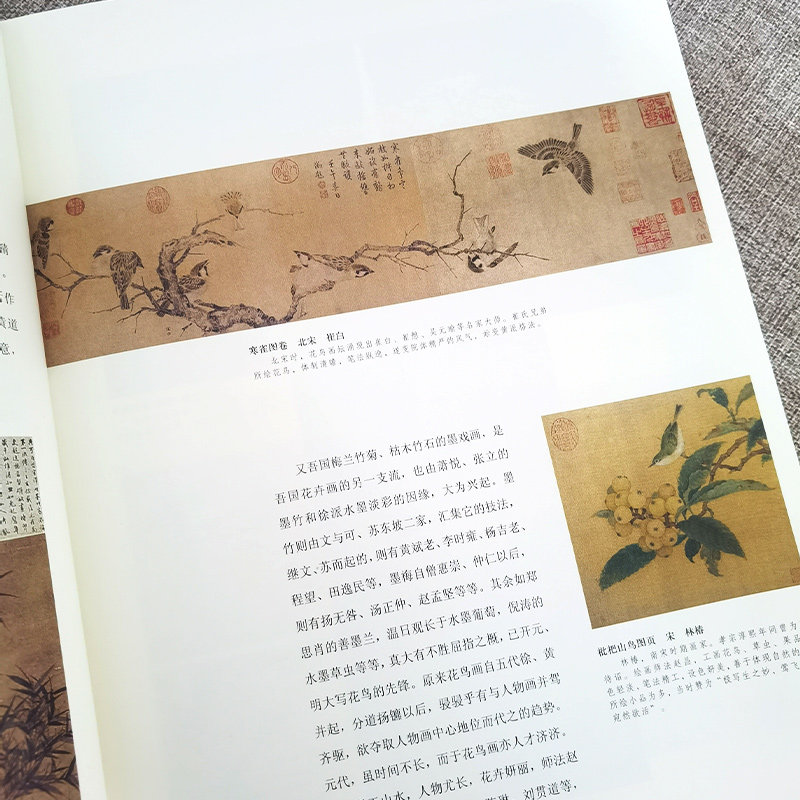 寒雀图卷 北宋 崔白
北宋时，花鸟画坛涌现出崔白、崔悫、吴元瑜等名家大师。崔氏兄弟
所绘花鸟，体制清赡，笔法纵逸，遂变院体精严的风气，亦变黄派格法。
又吾国梅兰竹菊、枯木竹石的墨戏画，是
吾国花卉画的另一支流，也由萧悦、张立的
墨竹和徐派水墨淡彩的因缘，大为兴起。墨
竹则由文与可、苏东坡二家，汇集它的技法，
继文、苏而起的，则有黄斌老、李时雍、杨吉老、
程望、田逸民等，墨梅自僧惠崇、仲仁以后，
则有扬无咎、汤正仲、赵孟坚等等。其余如郑
思肖的善墨兰，温日观长于水墨葡萄，倪涛的
水墨草虫等等，真大有不胜屈指之概，已开元、
明大写花鸟的先锋。原来花鸟画自五代徐、黄
并起，分道扬镳以后，骎骎乎有与人物画并驾
齐驱，欲夺取人物画中心地位而代之的趋势。
元代，虽时间不长，而于花鸟画亦人才济济。
山水，人物尤长，花卉妍丽，师法赵
琳、刘贯道等，
枇杷山鸟图页 宋 林椿
林椿，南宋时期画家。孝宗淳熙年间曾为
待诏。绘画师法赵昌，工画花鸟、草虫、果品
色轻淡，笔法精工，设色妍美，善于体现自然的
所绘小品为多，当时赞为“极写生之妙，莺飞
宛然欲活”。